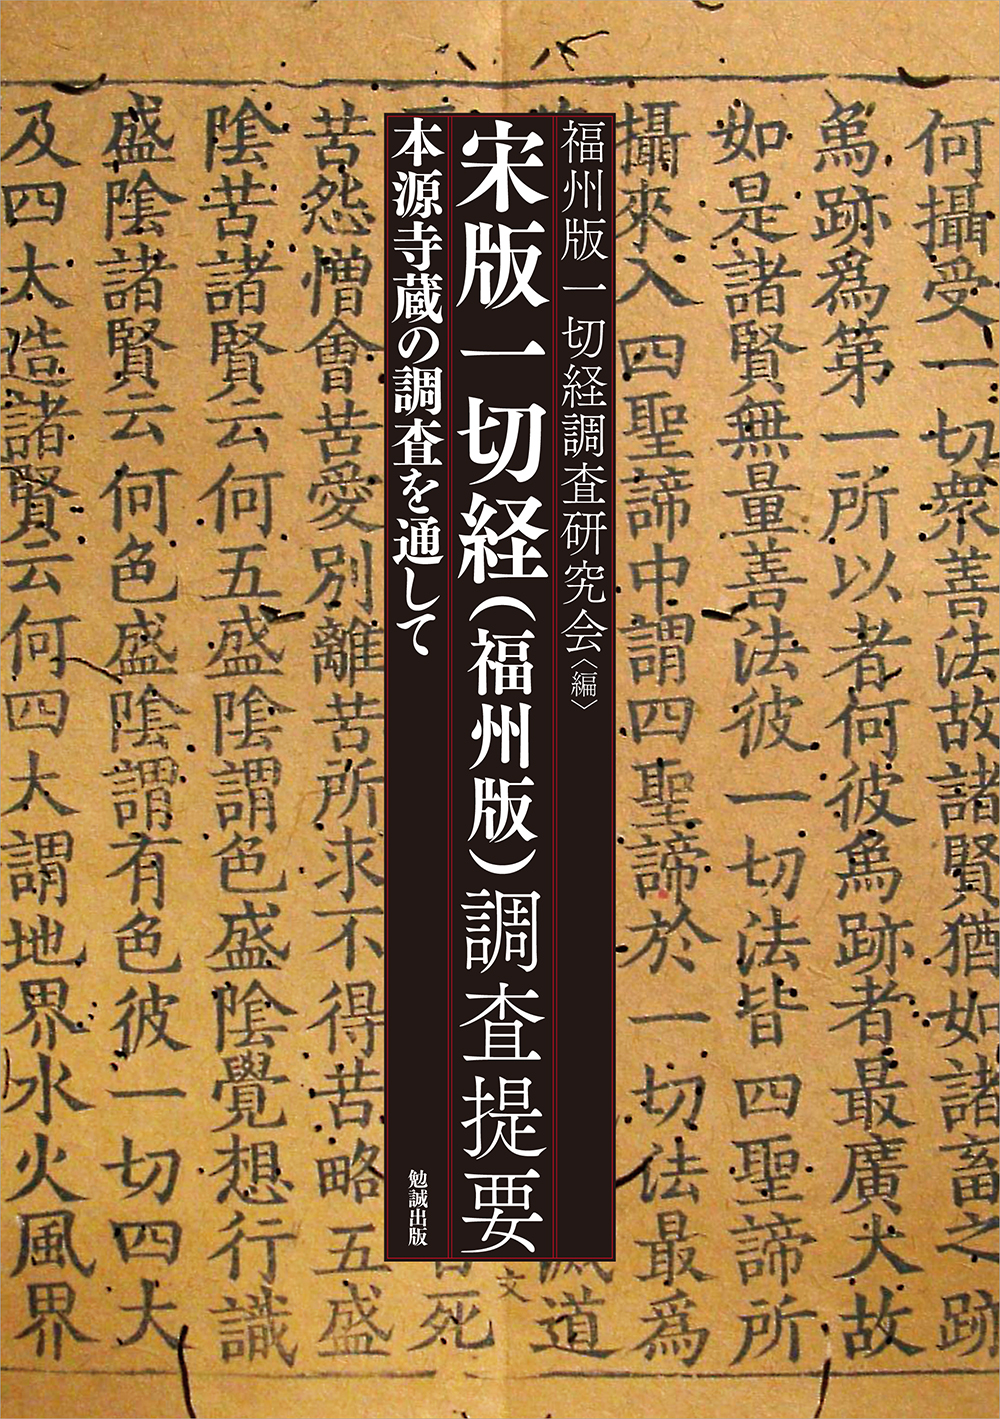 何攝受一切衆善法故諸賢猶如諸畜之跡
象跡爲第一所以者何彼象跡者最廣大故
如是諸賢無量善法彼一切法皆四聖諦所
攝來入四聖諦中謂四聖諦於一切法最爲
道
文
福州版一切経調査研究会〈編〉
宋版一切経(福州版)調査提要
本源寺蔵の調査を通して
勉誠出版
死
苦怨憎會苦愛別離苦所求不得苦略五盛
陰苦諸賢云何五盛陰謂色盛陰覺想行識
盛陰諸賢云何色盛陰謂有色彼一切四大
及四大造諸賢云何四大謂地界水火風界